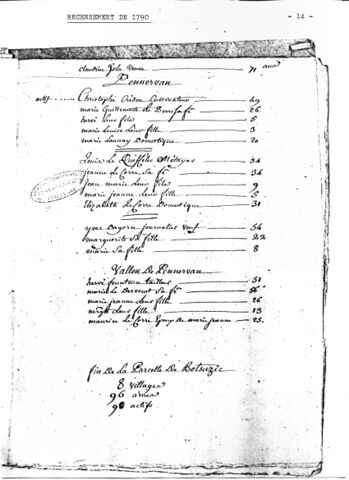 RECENSEMENT DE 1790 - 14 -
claudine Veuve 71 ans
Pennervan
actif Christophe Cultivateur 49
marie Guillemette de sa fe 26
hervé leur fils 5
marie Louise leur fille 3
marie Launay Domestique 20
Louis Le Métayer 34
jeanne Le Corre Sa fe 34
jean marie leur fils 9
marie jeanne leur fille 5
Elizabeth Le Corre Domestique 31
yves Dagorn journalier veuf 54
marguerite Sa fille 22
marie Sa fille 8
Vallon De Pennervan
hervé tailleur 51
marie Le Sa fe 56
marie jeanne leur fille 26
leur fille 13
maurice Le Corre Epoux de marie jeanne 25
fin De La Parcelle De Botsuzic
8 villages
96 ames
9 actifs